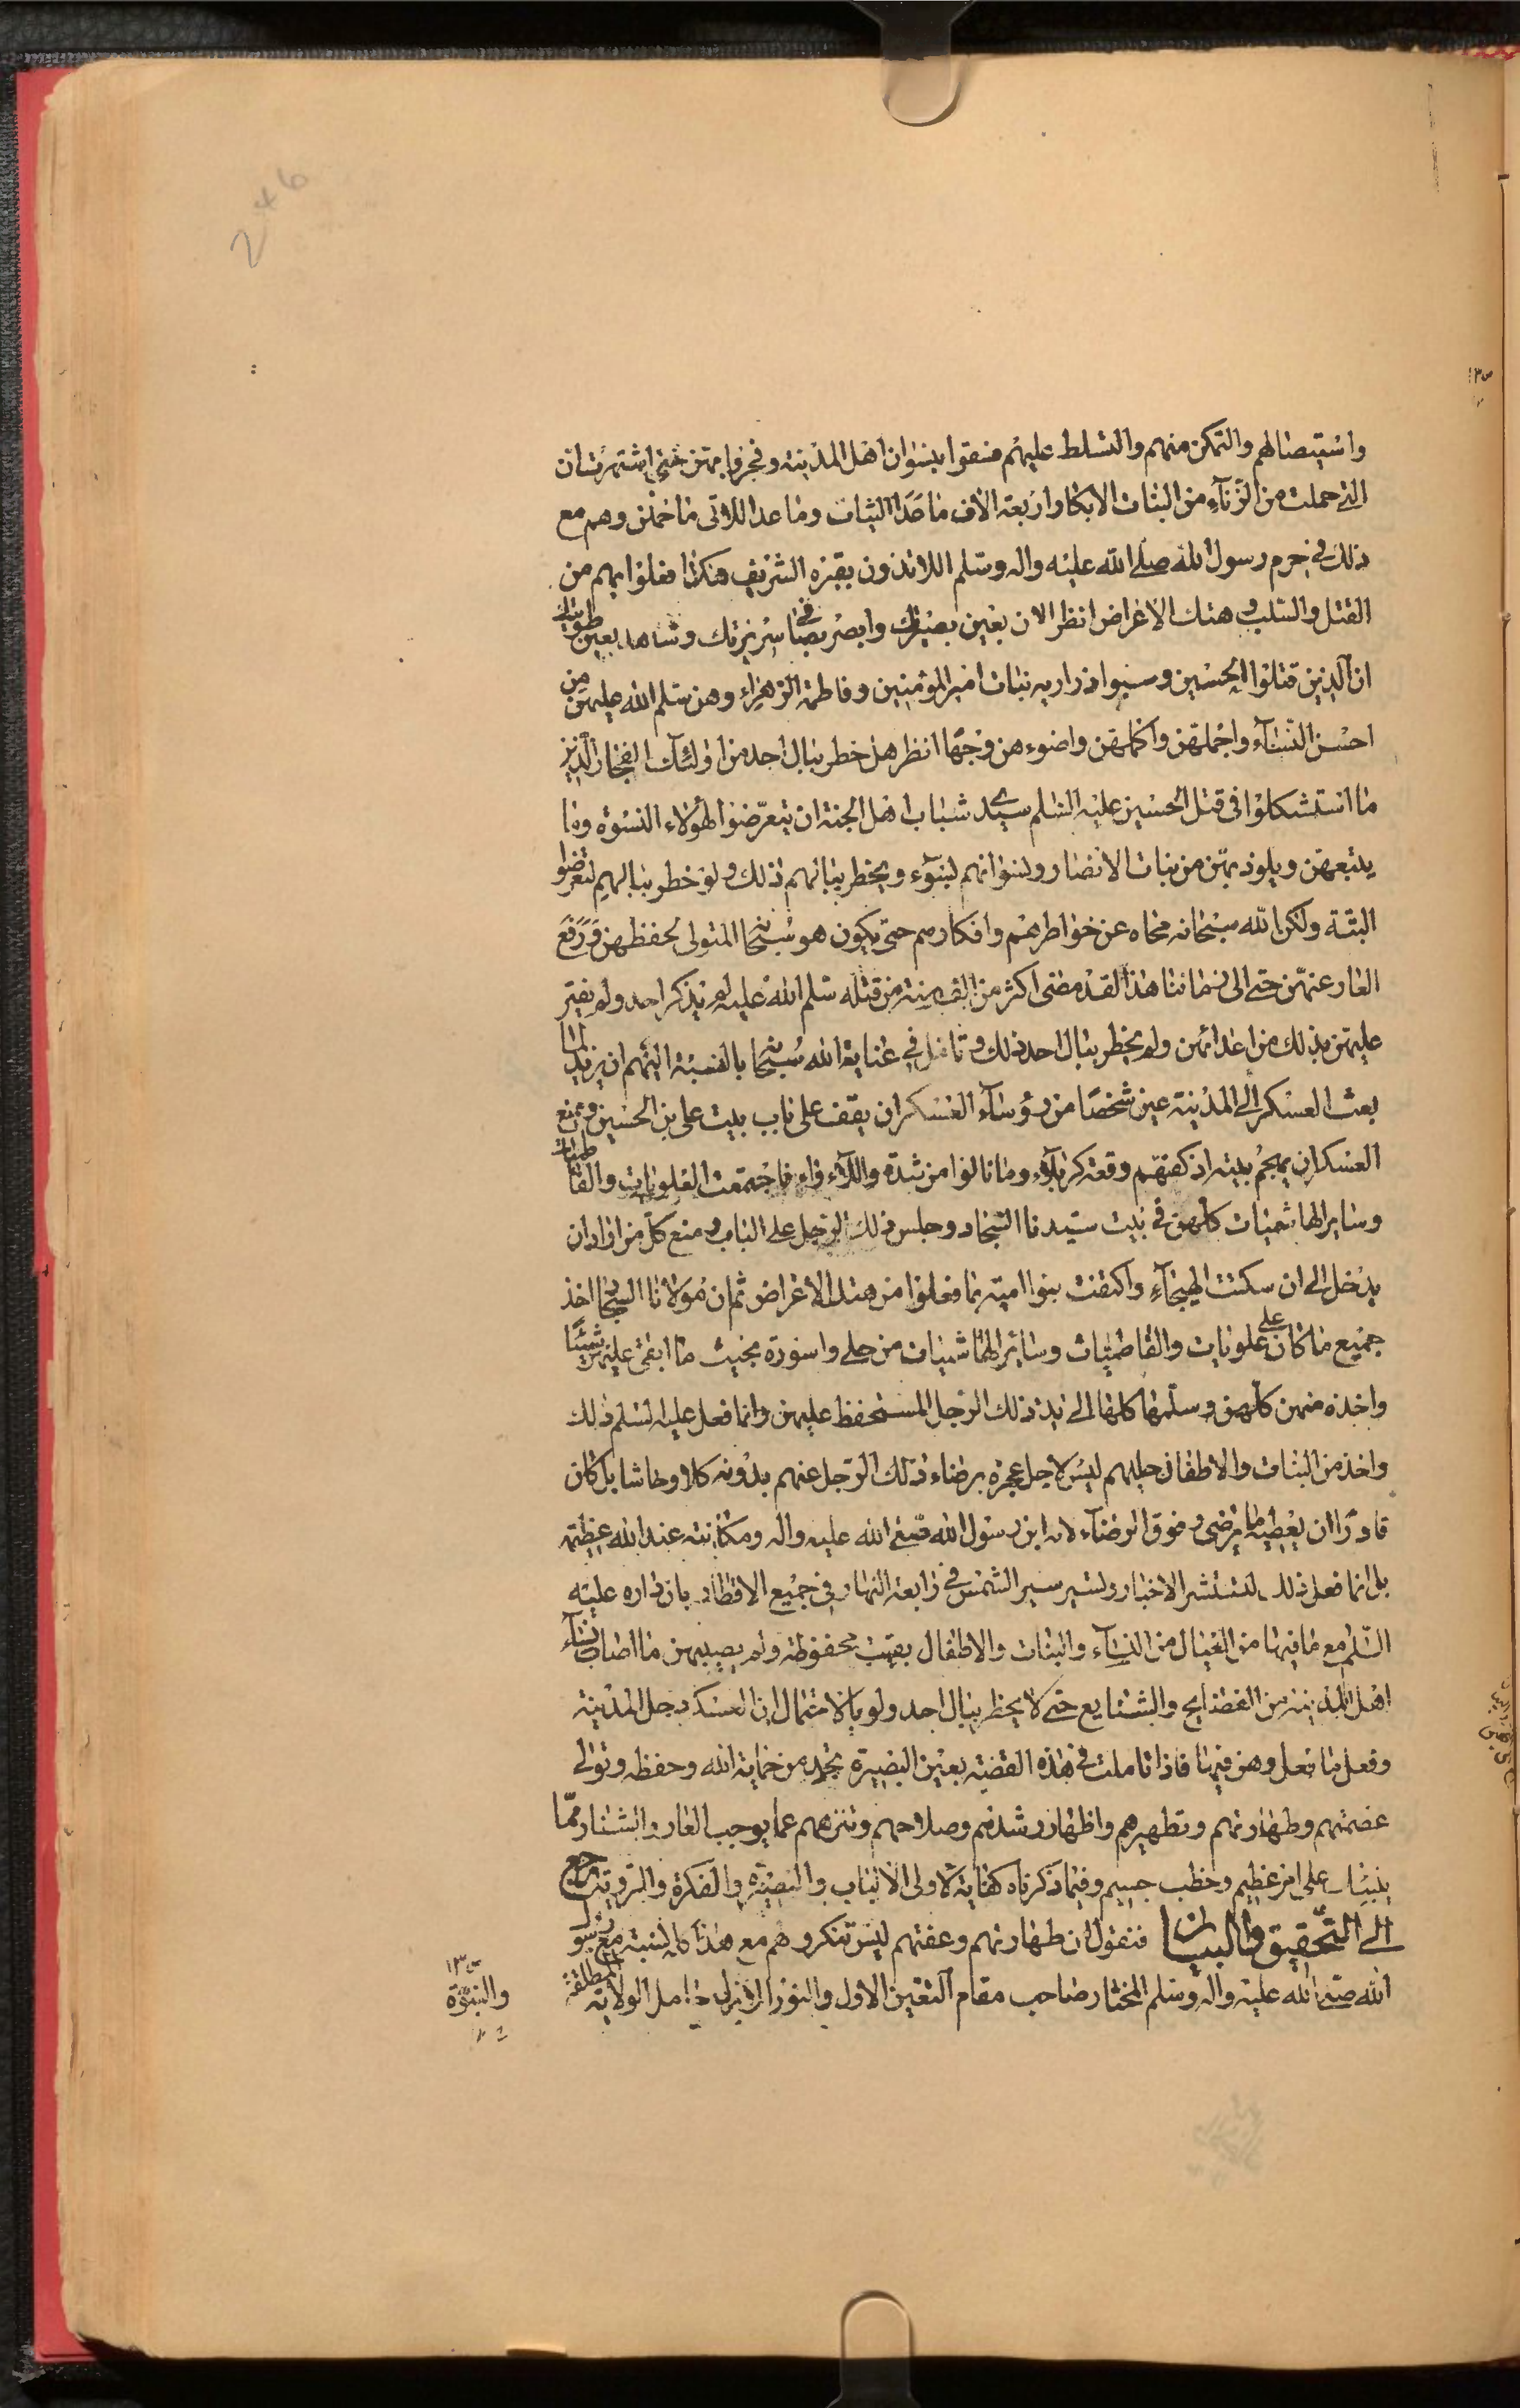 واستيصالهم والتمكن منهم والتسلط عليهم فسقوا بنسوان اهل المدينة وفجروا بهن حتى اشتهرت ان
التى حملت من الزناء من البنات الابكار اربعة الاف ما عدا الثيبات وما عدا اللاتى ما حملن وهم مع
ذلك فى حرم رسول الله صلى الله عليه واله وسلم اللائذون بقبره الشريف هكذا فعلوا بهم من
القتل والسلب وهتك الاعراض انظر الان بعين بصيرتك وابصر بصافى سريرتك وشاهد بعين طويتك
ان الذين قتلوا الحسين وسبوا ذراريه بنات امير المؤمنين وفاطمة الزهراء وهن سلم الله عليهن من
احسن النساء واجملهن واكملهن واضوءهن وجها انظر هل خطر ببال احد من اولئك الفجار الذين
ما استشكلوا فى قتل الحسين عليه السلم سيد شباب اهل الجنة ان يتعرضوا لهؤلاء النسوة وما
يتبعهن ويلوذ بهن من بنات الانصار ونسوانهم لبسوء ويخطر ببالهم ذلك ولو خطر ببالهم لتعرضوا
البتة ولكن الله سبحانه محاه عن خواطرهم وافكارهم حتى يكون هو سبحانه المتولى لحفظهن ورفع
العار عنهن حتى الى زماننا هذا لقد مضى اكثر من الف سنة من قتله سلم الله عليه لم يذكر احد ولم يفتر
عليهن بذلك من اعدائهن ولم يخطر ببال احد ذلك وتامل فى عناية الله سبحانه بالنسبة اليهم ان يزيد لما
بعث العسكر الى المدينة عين شخصا من رؤساء العسكر ان يقف على باب بيت على بن الحسين ويمنع
العسكر ان يهجم بيته اذ كفتهم وقعة كربلاء وما نالوا من شدة واللاواء فاجتمعت العلويات والفاطميات
وساير الهاشميات كلهن فى بيت سيدنا السجاد وجلس ذلك الرجل على الباب ومنع كل من اراد ان
يدخل الى ان سكنت الهيجاء واكتفت بنوا امية بما فعلوا من هتك الاعراض ثم ان مولانا السجاد اخذ
جميع ما كان على علويات والفاطميات وسائر الهاشميات من حلى واسورة بحيث ما ابقى عليهن شيئا
واخذه منهن كلهن وسلمها كلها الى يد ذلك الرجل المستحفظ عليهن وانما فعل عليه السلم ذلك
واخذ من البنات والاطفال حليهم ليس لاجل عجزه برضاء ذلك الرجل عنهم بدونه كلا وحاشا بل كان
قادرا ان يعطيه ما يرضى وفوق الرضاء لانه ابن رسول الله صلى الله عليه واله ومكانته عند الله عظيمة
بل انما فعل ذلك لتنتشر الاخبار وتسير سير الشمس فى رابعة النهار فى جميع الاقطار بان داره عليه
السلم مع ما فيها من العيال من النساء والبنات والاطفال بقيت محفوظة ولم يصيبهن ما اصاب نساء
اهل المدينة من الفضايح والشنايع حتى لا يخطر ببال احد ولو بالاحتمال ان العسكر دخل المدينة
وفعل ما فعل وهن فيها فاذا تاملت فى هذه القضية بعين البصيرة تجد من حماية الله وحفظه وتولى
عصمتهم وطهارتهم وتطهيرهم واظهار رشدهم وصلاحهم وتنزههم عما يوجب العار والشنار مما
ينبئك على امر عظيم وخطب جسيم وفيما ذكرناه كفاية لاولى الالباب والبصيرة والفكرة والروية مرجع
الى التحقيق والبيان فنقول ان طهارتهم وعفتهم ليس تنكر وهم مع هذا كله بالنسبة مع رسول
الله صلى الله عليه واله وسلم المختار صاحب مقام التعين الاول والنور الازلى حامل الولاية المطلقة
والنبوة